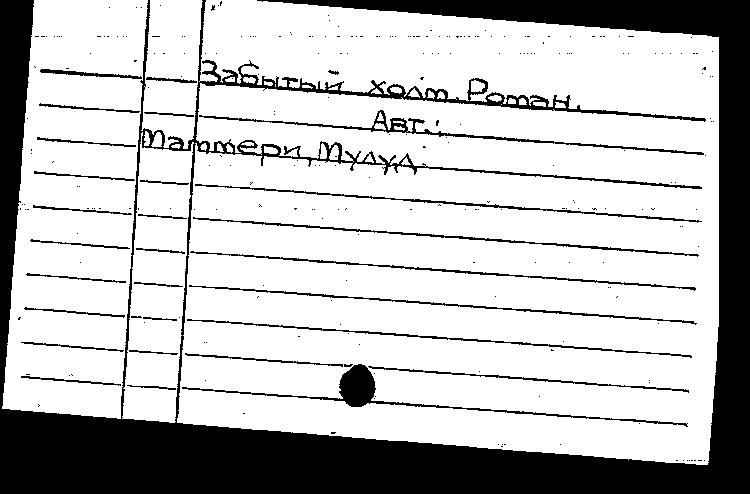 Забытый холм. Роман.
Авт.:
Маммери, Мулуд